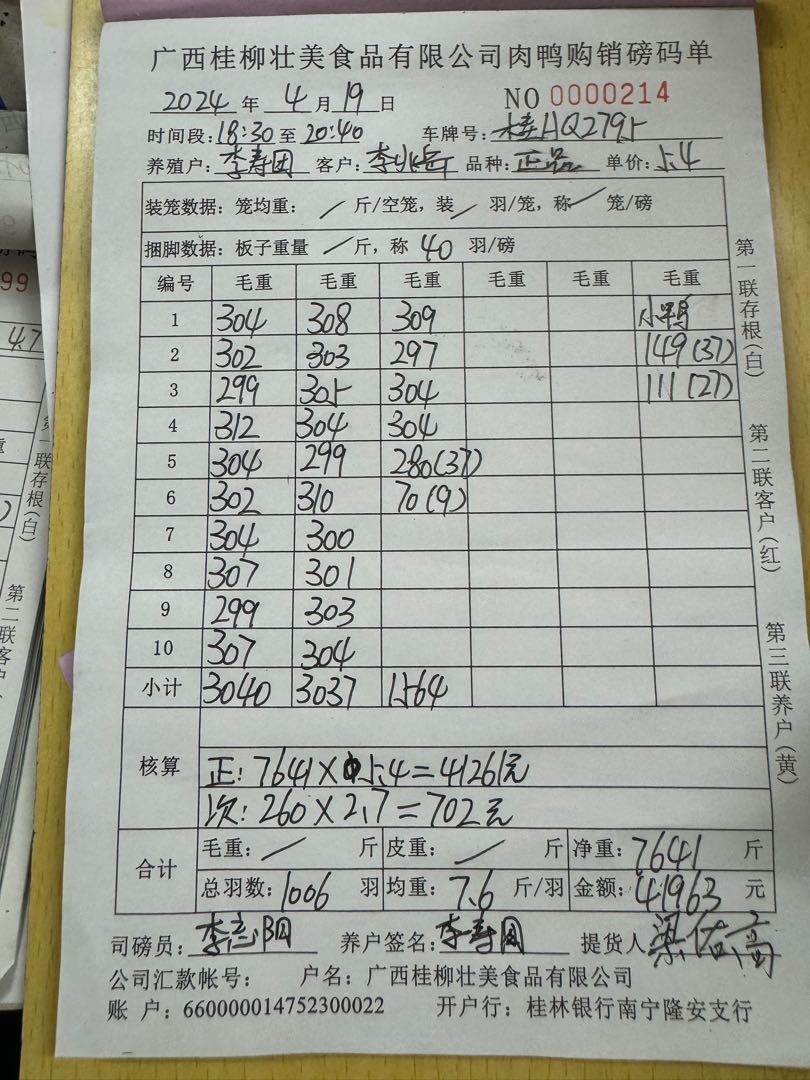 广西桂柳壮美食品有限公司肉鸭购销磅码单
2024 年 4 月 19 日 NO 0000214
时间段: 18:30 至 20:40 车牌号: 桂HQ2795
养殖户: 李寿团 客户: 李兆岳 品种: 正品 单价: 5.4
装笼数据: 笼均重: / 斤/空笼, 装 / 羽/笼, 称 / 笼/磅
捆脚数据: 板子重量 / 斤, 称 40 羽/磅
编号 毛重 毛重 毛重 毛重 毛重 毛重
1 304 308 309 小鸭
2 302 303 297 149(37)
3 299 305 304 111(27)
4 312 304 304
5 304 299 280(37)
6 302 310 70(9)
7 304 300
8 307 301
9 299 303
10 307 304
小计 3040 3037 1564
核算
正: 7641×5.4=41261元
次: 260×2.7=702元
合计
毛重: / 斤 皮重: / 斤 净重: 7641 斤
总羽数: 1006 羽 均重: 7.6 斤/羽 金额: 41963 元
司磅员: 李志阳 养户签名: 李寿团 提货人
公司汇款帐号: 户名: 广西桂柳壮美食品有限公司
账 户: 660000014752300022 开户行: 桂林银行南宁隆安支行
第一联存根(白)
第二联客户(红)
第三联养户(黄)
99
47
第一联存根(白)
第二联客